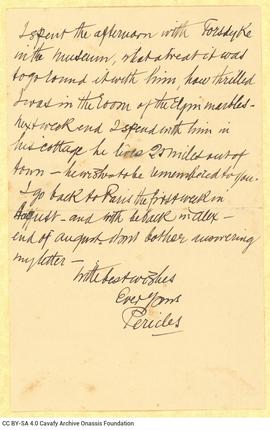 I spent the afternoon with Forsdyke
in the museum, what a treat it was
to go round it with him, how thrilled
I was in the room of the Elgin marbles –
next week end I spend with him in
his cottage he lives 25 miles out of
town – he wishes to be remembered to you.
I go back to Paris the first week in
August – and will be back in Alex –
end of august. don't bother answering
my letter –
With best wishes
Ever Yours
Pericles
CC BY-SA 4.0 Cavafy Archive Onassis Foundation